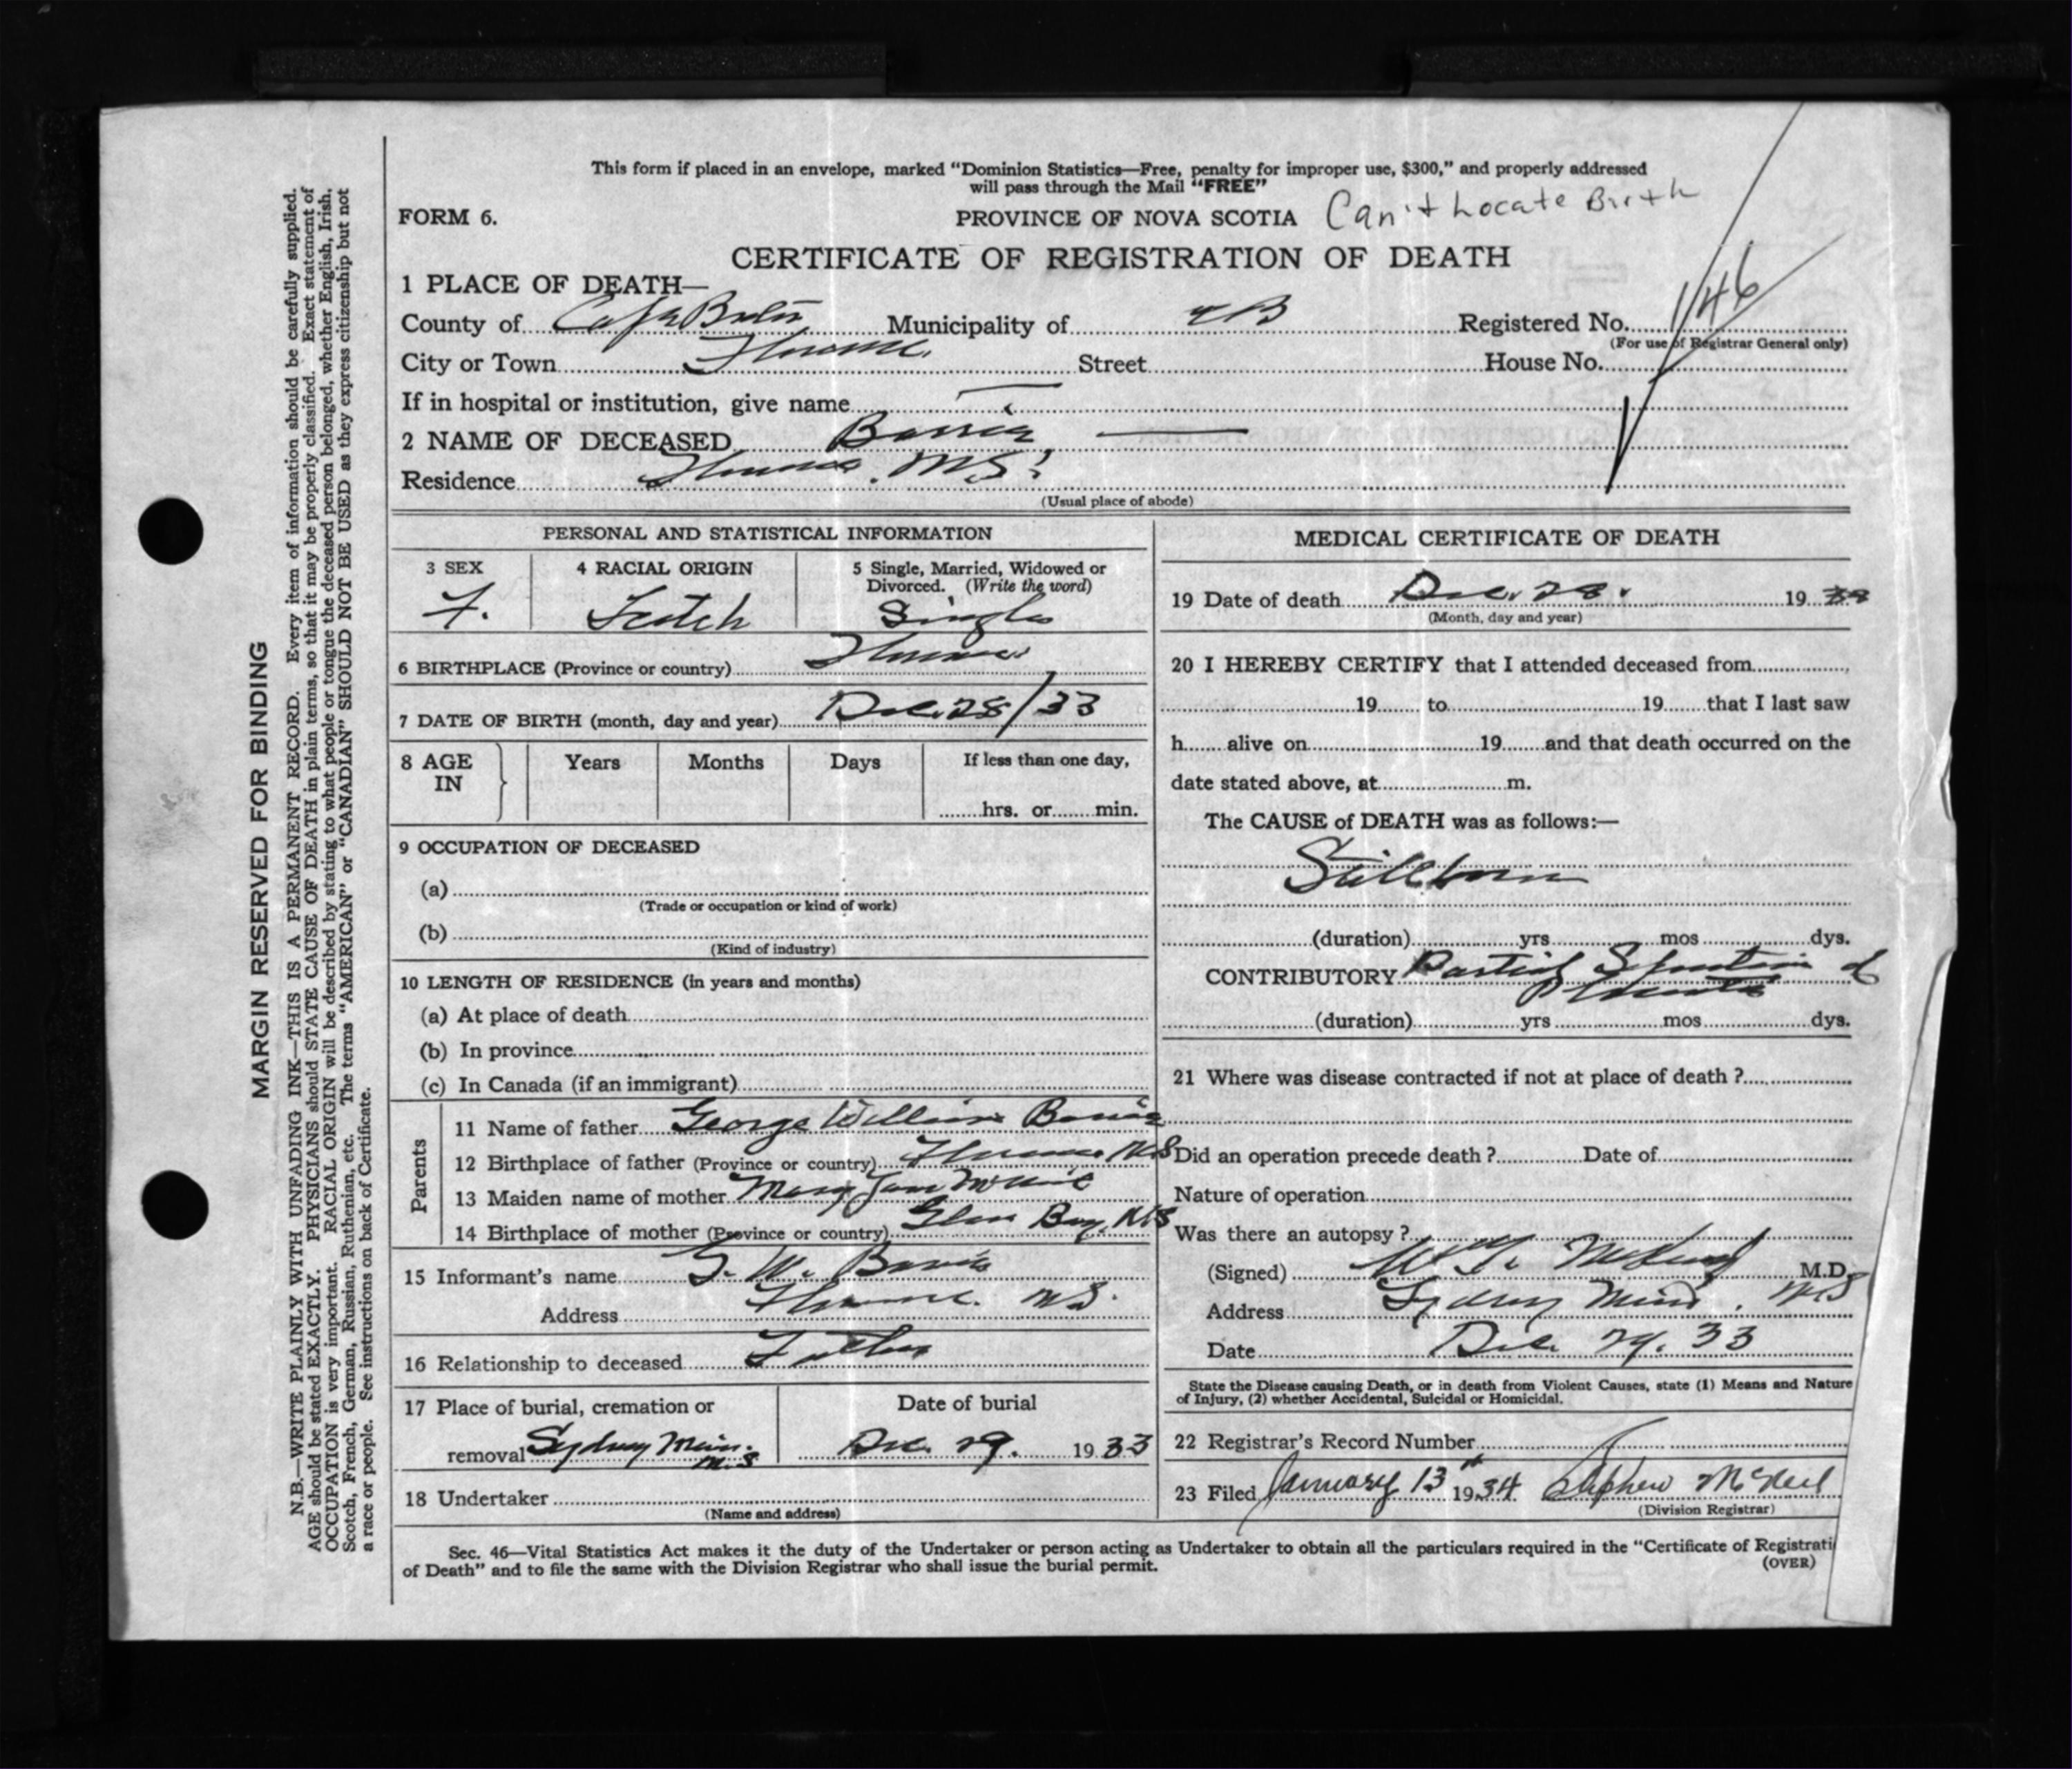 This form if placed in an envelope, marked “Dominion Statistics—Free, penalty for improper use, $300,” and properly addressed
will pass through the Mail “FREE”
FORM 6.
PROVINCE OF NOVA SCOTIA Can't Locate Birth
CERTIFICATE OF REGISTRATION OF DEATH
1 PLACE OF DEATH—
County of Cape Breton Municipality of CB Registered No. 146
(For use of Registrar General only)
City or Town Florence Street House No.
If in hospital or institution, give name
2 NAME OF DECEASED
Residence Florence. N.S.
(Usual place of abode)
PERSONAL AND STATISTICAL INFORMATION
3 SEX
F.
4 RACIAL ORIGIN
Scotch
5 Single, Married, Widowed or
Divorced. (Write the word)
Single
6 BIRTHPLACE (Province or country) Florence
7 DATE OF BIRTH (month, day and year) Dec. 28/33
8 AGE
IN
Years
Months
Days
If less than one day,
hrs. or min.
9 OCCUPATION OF DECEASED
(a)
(Trade or occupation or kind of work)
(b)
(Kind of industry)
10 LENGTH OF RESIDENCE (in years and months)
(a) At place of death
(b) In province
(c) In Canada (if an immigrant)
Parents
11 Name of father George William
12 Birthplace of father (Province or country) Florence N.S
13 Maiden name of mother Mary Jane
14 Birthplace of mother (Province or country) Glace Bay, N.S
15 Informant's name G. W.
Address Florence. N.S.
16 Relationship to deceased Father
17 Place of burial, cremation or
removal Sydney Mines.
N.S
Date of burial
Dec. 29. 1933
18 Undertaker
(Name and address)
MEDICAL CERTIFICATE OF DEATH
19 Date of death Dec. 28. 19
(Month, day and year)
20 I HEREBY CERTIFY that I attended deceased from
19 to 19 that I last saw
h alive on 19 and that death occurred on the
date stated above, at m.
The CAUSE of DEATH was as follows:—
Stillborn
(duration) yrs mos dys.
CONTRIBUTORY Partial Separation of
Placenta
(duration) yrs mos dys.
21 Where was disease contracted if not at place of death ?
Did an operation precede death ? Date of
Nature of operation
Was there an autopsy ?
(Signed) M.D.
Address Sydney Mines. N.S
Date Dec. 29. 33
State the Disease causing Death, or in death from Violent Causes, state (1) Means and Nature
of Injury, (2) whether Accidental, Suicidal or Homicidal.
22 Registrar's Record Number
23 Filed January 13th 1934 Stephen McNeil
(Division Registrar)
Sec. 46—Vital Statistics Act makes it the duty of the Undertaker or person acting as Undertaker to obtain all the particulars required in the “Certificate of Registrati
of Death” and to file the same with the Division Registrar who shall issue the burial permit.
(OVER)
MARGIN RESERVED FOR BINDING
N.B.—WRITE PLAINLY WITH UNFADING INK—THIS IS A PERMANENT RECORD. Every item of information should be carefully supplied.
AGE should be stated EXACTLY. PHYSICIANS should STATE CAUSE OF DEATH in plain terms, so that it may be properly classified. Exact statement of
OCCUPATION is very important. RACIAL ORIGIN will be described by stating to what people or tongue the deceased person belonged, whether English, Irish,
Scotch, French, German, Russian, Ruthenian, etc. The terms “AMERICAN” or “CANADIAN” SHOULD NOT BE USED as they express citizenship but not
a race or people. See instructions on back of Certificate.